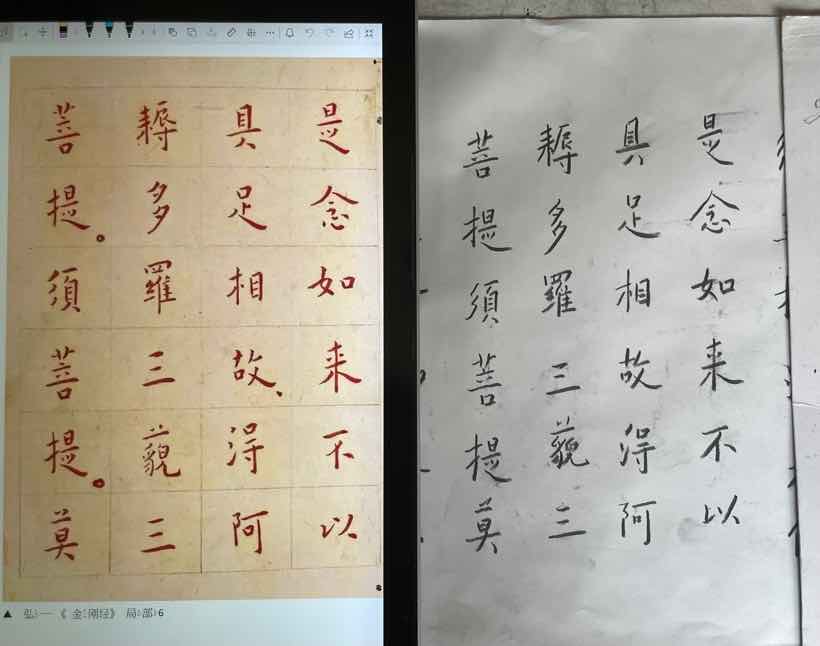 是念如来不以
具足相故、得阿
耨多羅三藐三
菩提。須菩提。莫
▲ 弘一《金刚经》局部6
是念如来不以
具足相故得阿
耨多羅三藐三
菩提須菩提莫